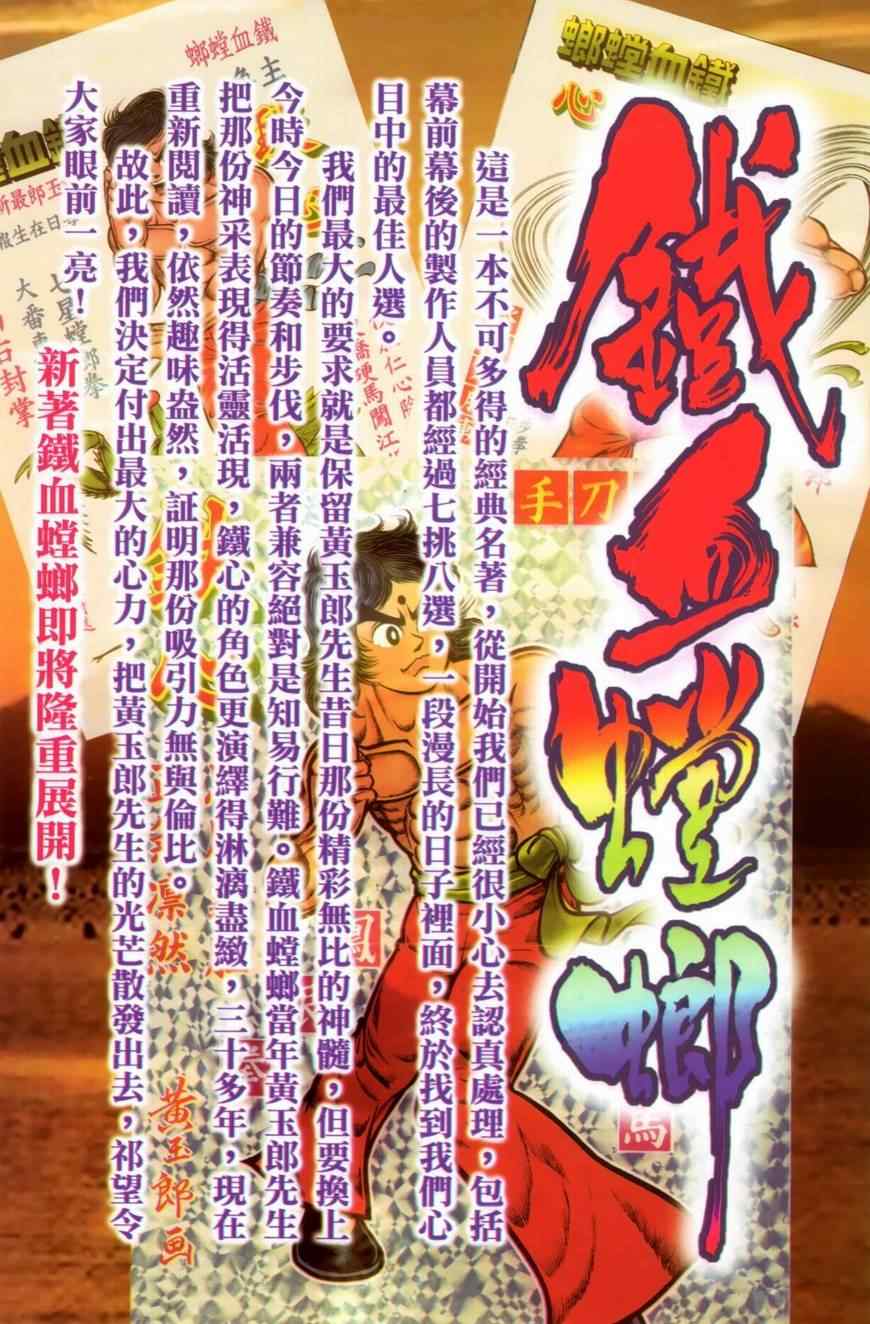 鐵血螳螂
這是一本不可多得的經典名著，從開始我們已經很小心去認真處理，包括
幕前幕後的製作人員都經過七挑八選，一段漫長的日子裡面，終於找到我們心
目中的最佳人選。
我們最大的要求就是保留黃玉郎先生昔日那份精彩無比的神髓，但要換上
今時今日的節奏和步伐，兩者兼容絕對是知易行難。鐵血螳螂當年黃玉郎先生
把那份神采表現得活靈活現，鐵心的角色更演繹得淋漓盡緻，三十多年，現在
重新閱讀，依然趣味盎然，証明那份吸引力無與倫比。
故此，我們決定付出最大的心力，把黃玉郎先生的光芒散發出去，祁望令
大家眼前一亮！
新著鐵血螳螂即將隆重展開！
螂螳血鐵
心
螂螳血鐵
手刀
鳳
馬
凛然
黃玉郎画